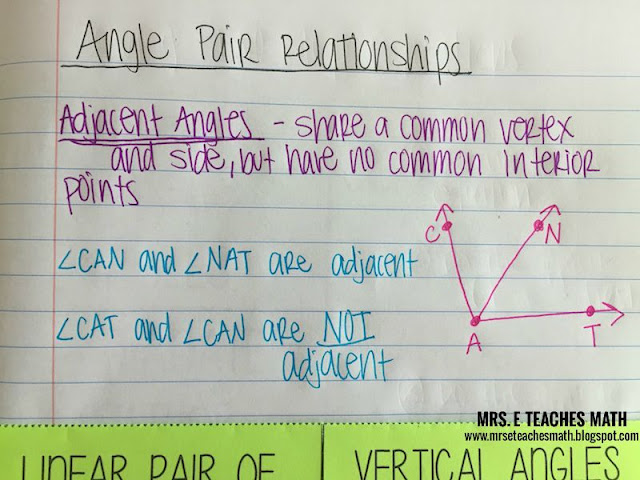 Angle Pair Relationships
Adjacent Angles - share a common vertex
and side, but have no common interior
points
C
N
∠CAN and ∠NAT are adjacent
∠CAT and ∠CAN are NOT
adjacent
A
T
MRS. E TEACHES MATH
www.mrseteachesmath.blogspot.com
LINEAR PAIR OF
VERTICAL ANGLES